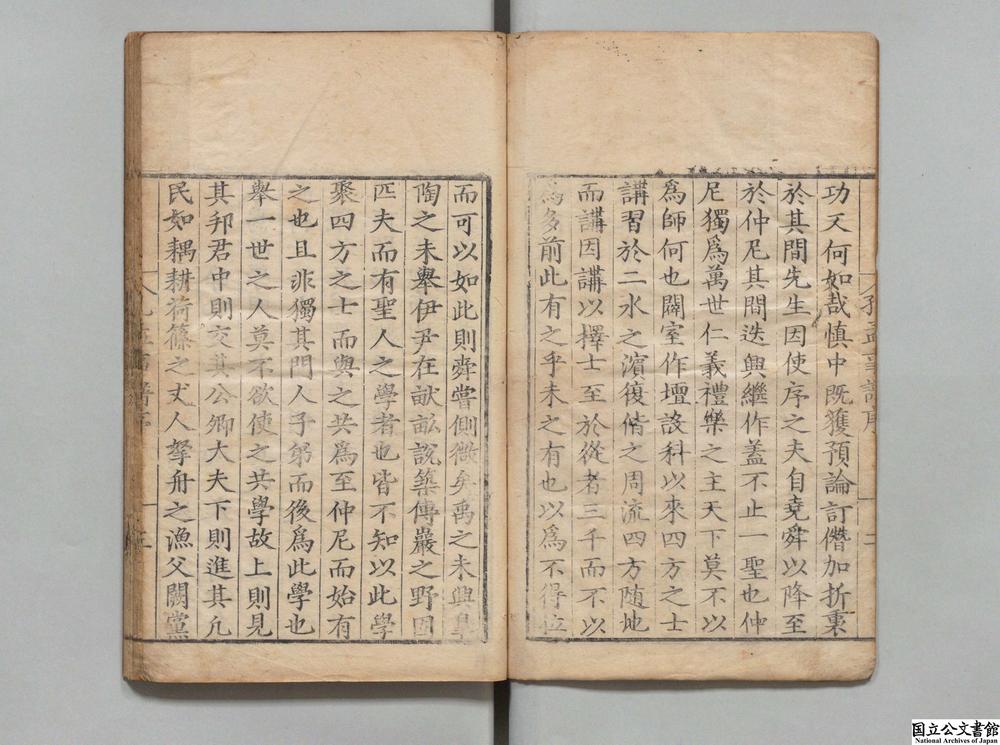 功又何如哉慎中既獲預論訂僭加折衷
於其間先生因使序之夫自堯舜以降至
於仲尼其間迭興繼作蓋不止一聖也仲
尼獨爲萬世仁義禮樂之主天下莫不以
爲師何也闢室作壇設科以來四方之士
講習於二水之濵復偹之周流四方随地
而講因講以擇士至於從者三千而不以
爲多前此有之乎未之有也以爲不得位
而可以如此則舜嘗側微矣禹之未興臯
陶之未舉伊尹在畎畝說築傅巖之野四
匹夫而有聖人之學者也皆不知以此學
聚四方之士而與之共爲至仲尼而始有
之也且非獨其門人子弟而後爲此學也
舉一世之人莫不欲使之共學故上則見
其邦君中則交其公卿大夫下則進其凡
民如耦耕荷篠之丈人拏舟之漁父闕黨
國立公文書館
National Archives of Japan